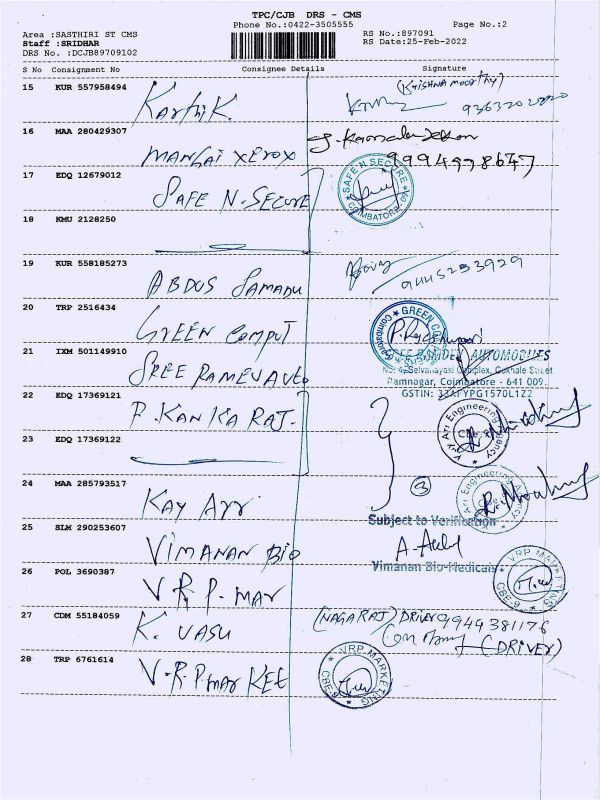 TPC/CJB DRS - CMS
Phone No.:0422-3505555
Page No.:2
Area :SASTHIRI ST CMS
Staff :SRIDHAR
DRS No. :DCJB89709102
RS No.:897091
RS Date:25-Feb-2022
S No Consignment No Consignee Details Signature
15 KUR 557958494
Karthik.
(Krishna moorthy)
16 MAA 280429307
MANGAI XEROX
9994978647
17 EDQ 12679012
SAFE N-SECURE
SAFE N SECURE
COIMBATORE-09
18 KMU 2128250
19 KUR 558185273
ABDUS SAMADU
9445253929
20 TRP 2516434
GREEN COMPUT
21 IXM 501149910
SREE RAMDEV AUTO
SREE RAMDEV AUTOMOBILES
No: 4, Selvanayagi Complex, Gokhale Street
Ramnagar, Coimbatore - 641 009.
GSTIN: 33AFYPG1570L1Z2
22 EDQ 17369121
P. KANKARAJ.
Ari Engineering Agency
23 EDQ 17369122
24 MAA 285793517
KAY Arr
3
Ari Engineering
Subject to Verification
25 SLM 290253607
VIMANAN BIO
Vimanan Bio-Medicals
26 POL 3690387
V R P. MAR
VRP MARKETING
CBE-9
27 CDM 55184059
K. VASU
(NAGARAJ) DRIVER 9949381176
(DRIVER)
28 TRP 6761614
V.R.P MARKET
VRP MARKETING
CBE-9